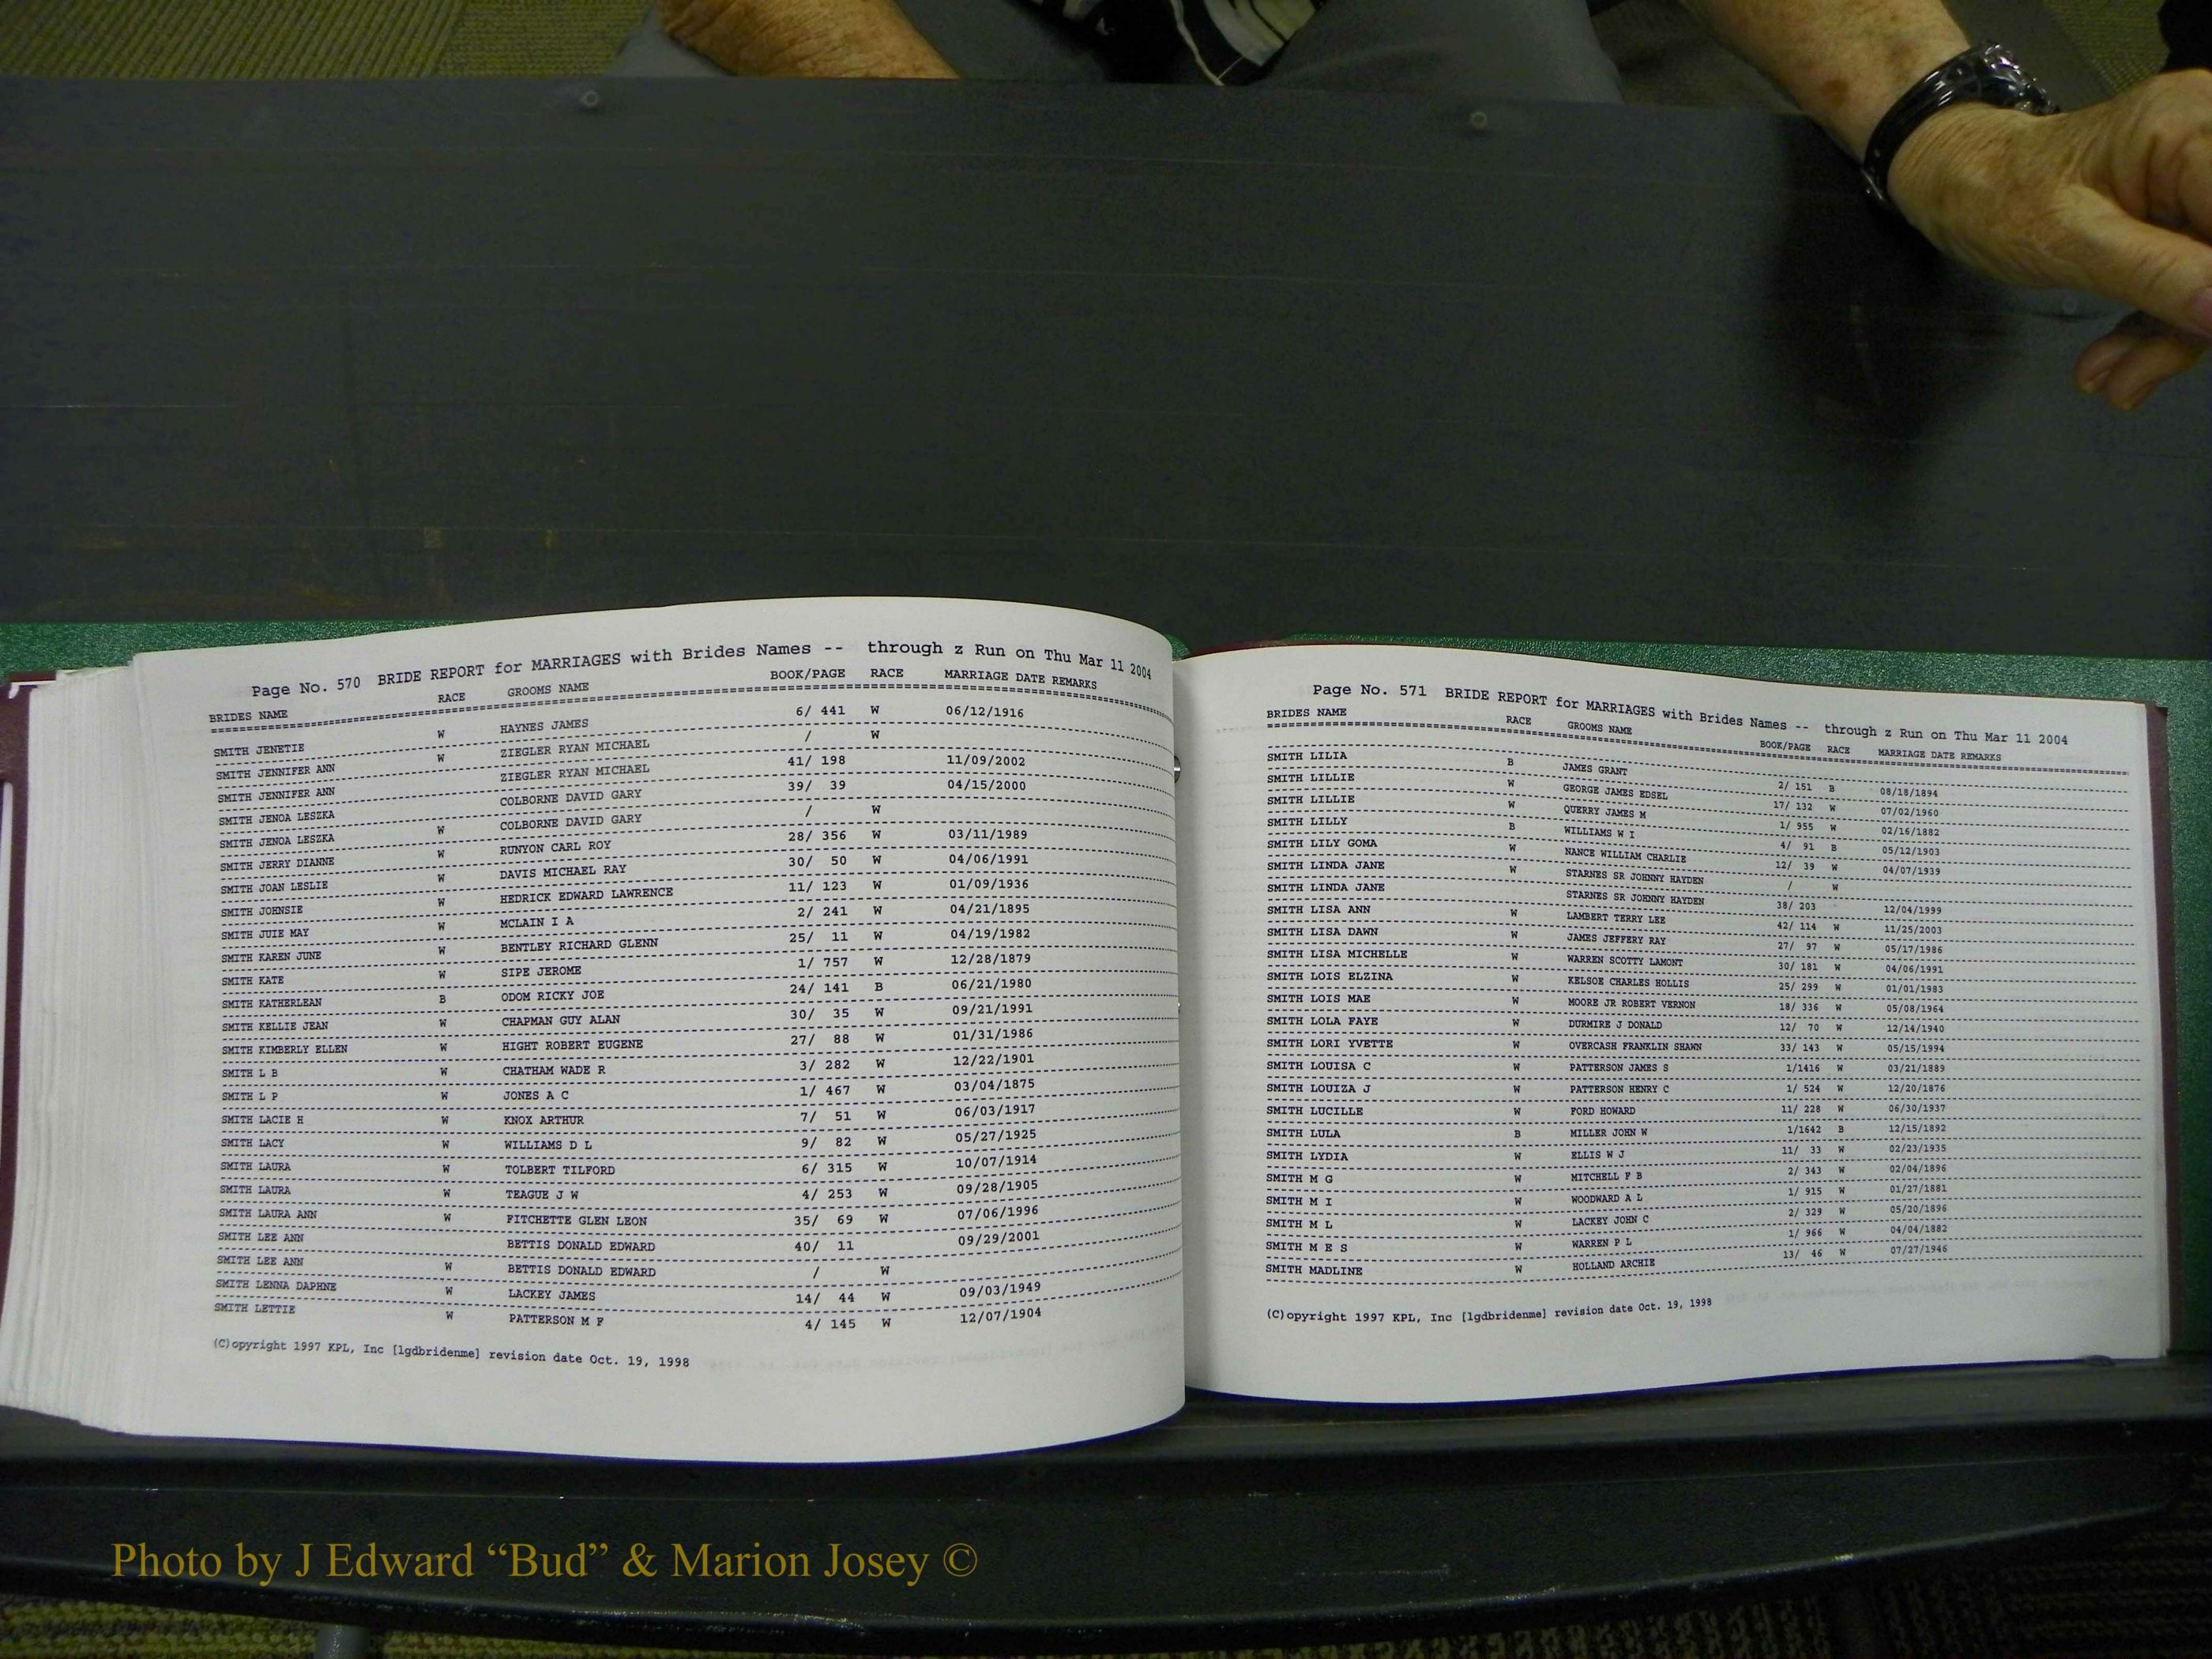 Page No. 570 BRIDE REPORT for MARRIAGES with Brides Names -- through z Run on Thu Mar 11 2004
BRIDES NAME RACE GROOMS NAME BOOK/PAGE RACE MARRIAGE DATE REMARKS
SMITH JENETIE W HAYNES JAMES 6/ 441 W 06/12/1916
SMITH JENNIFER ANN W ZIEGLER RYAN MICHAEL / W
SMITH JENNIFER ANN ZIEGLER RYAN MICHAEL 41/ 198 11/09/2002
SMITH JENOA LESZKA COLBORNE DAVID GARY 39/ 39 04/15/2000
SMITH JENOA LESZKA W COLBORNE DAVID GARY / W
SMITH JERRY DIANNE W RUNYON CARL ROY 28/ 356 W 03/11/1989
SMITH JOAN LESLIE W DAVIS MICHAEL RAY 30/ 50 W 04/06/1991
SMITH JOHNSIE W HEDRICK EDWARD LAWRENCE 11/ 123 W 01/09/1936
SMITH JUIE MAY W MCLAIN I A 2/ 241 W 04/21/1895
SMITH KAREN JUNE W BENTLEY RICHARD GLENN 25/ 11 W 04/19/1982
SMITH KATE W SIPE JEROME 1/ 757 W 12/28/1879
SMITH KATHERLEAN B ODOM RICKY JOE 24/ 141 B 06/21/1980
SMITH KELLIE JEAN W CHAPMAN GUY ALAN 30/ 35 W 09/21/1991
SMITH KIMBERLY ELLEN W HIGHT ROBERT EUGENE 27/ 88 W 01/31/1986
SMITH L B W CHATHAM WADE R 3/ 282 W 12/22/1901
SMITH L P W JONES A C 1/ 467 W 03/04/1875
SMITH LACIE H W KNOX ARTHUR 7/ 51 W 06/03/1917
SMITH LACY W WILLIAMS D L 9/ 82 W 05/27/1925
SMITH LAURA W TOLBERT TILFORD 6/ 315 W 10/07/1914
SMITH LAURA W TEAGUE J W 4/ 253 W 09/28/1905
SMITH LAURA ANN W FITCHETTE GLEN LEON 35/ 69 W 07/06/1996
SMITH LEE ANN BETTIS DONALD EDWARD 40/ 11 09/29/2001
SMITH LEE ANN W BETTIS DONALD EDWARD / W
SMITH LENNA DAPHNE W LACKEY JAMES 14/ 44 W 09/03/1949
SMITH LETTIE W PATTERSON M F 4/ 145 W 12/07/1904
(C)opyright 1997 KPL, Inc [lgdbridenme] revision date Oct. 19, 1998
Page No. 571 BRIDE REPORT for MARRIAGES with Brides Names -- through z Run on Thu Mar 11 2004
BRIDES NAME RACE GROOMS NAME BOOK/PAGE RACE MARRIAGE DATE REMARKS
SMITH LILIA B JAMES GRANT 2/ 151 B 08/18/1894
SMITH LILLIE W GEORGE JAMES EDSEL 17/ 132 W 07/02/1960
SMITH LILLIE W QUERRY JAMES M 1/ 955 W 02/16/1882
SMITH LILLY B WILLIAMS W I 4/ 91 B 05/12/1903
SMITH LILY GOMA W NANCE WILLIAM CHARLIE 12/ 39 W 04/07/1939
SMITH LINDA JANE W STARNES SR JOHNNY HAYDEN / W
SMITH LINDA JANE STARNES SR JOHNNY HAYDEN 38/ 203 12/04/1999
SMITH LISA ANN W LAMBERT TERRY LEE 42/ 114 W 11/25/2003
SMITH LISA DAWN W JAMES JEFFERY RAY 27/ 97 W 05/17/1986
SMITH LISA MICHELLE W WARREN SCOTTY LAMONT 30/ 181 W 04/06/1991
SMITH LOIS ELZINA W KELSOE CHARLES HOLLIS 25/ 299 W 01/01/1983
SMITH LOIS MAE W MOORE JR ROBERT VERNON 18/ 336 W 05/08/1964
SMITH LOLA FAYE W DURMIRE J DONALD 12/ 70 W 12/14/1940
SMITH LORI YVETTE W OVERCASH FRANKLIN SHAWN 33/ 143 W 05/15/1994
SMITH LOUISA C W PATTERSON JAMES S 1/1416 W 03/21/1889
SMITH LOUIZA J W PATTERSON HENRY C 1/ 524 W 12/20/1876
SMITH LUCILLE W FORD HOWARD 11/ 228 W 06/30/1937
SMITH LULA B MILLER JOHN W 1/1642 B 12/15/1892
SMITH LYDIA W ELLIS W J 11/ 33 W 02/23/1935
SMITH M G W MITCHELL F B 2/ 343 W 02/04/1896
SMITH M I W WOODWARD A L 1/ 915 W 01/27/1881
SMITH M L W LACKEY JOHN C 2/ 329 W 05/20/1896
SMITH M E S W WARREN P L 1/ 966 W 04/04/1882
SMITH MADLINE W HOLLAND ARCHIE 13/ 46 W 07/27/1946
(C)opyright 1997 KPL, Inc [lgdbridenme] revision date Oct. 19, 1998
Photo by J Edward “Bud” & Marion Josey ©